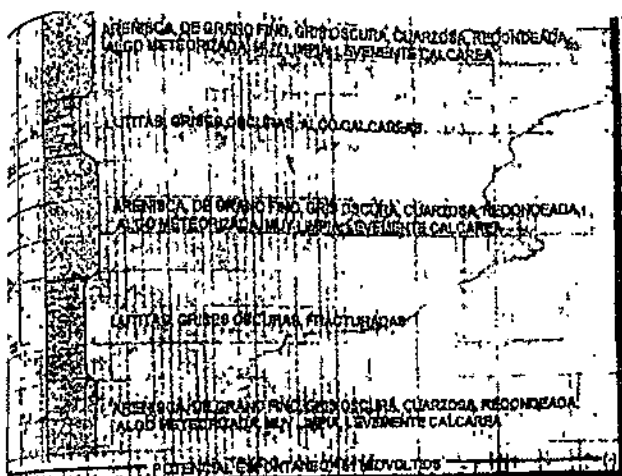 ARENISCA, DE GRANO FINO, GRIS OSCURA, CUARZOSA, REDONDEADA,
ALGO METEORIZADA, MUY LIMPIA, LEVEMENTE CALCAREA
LUTITAS, GRISES OSCURAS, ALGO CALCAREAS
ARENISCA, DE GRANO FINO, GRIS OSCURA, CUARZOSA, REDONDEADA,
ALGO METEORIZADA, MUY LIMPIA, LEVEMENTE CALCAREA
LUTITAS, GRISES OSCURAS, FRACTURADAS
ARENISCA, DE GRANO FINO, GRIS OSCURA, CUARZOSA, REDONDEADA
ALGO METEORIZADA, MUY LIMPIA, LEVEMENTE CALCAREA
POTENCIAL ESPONTANEO